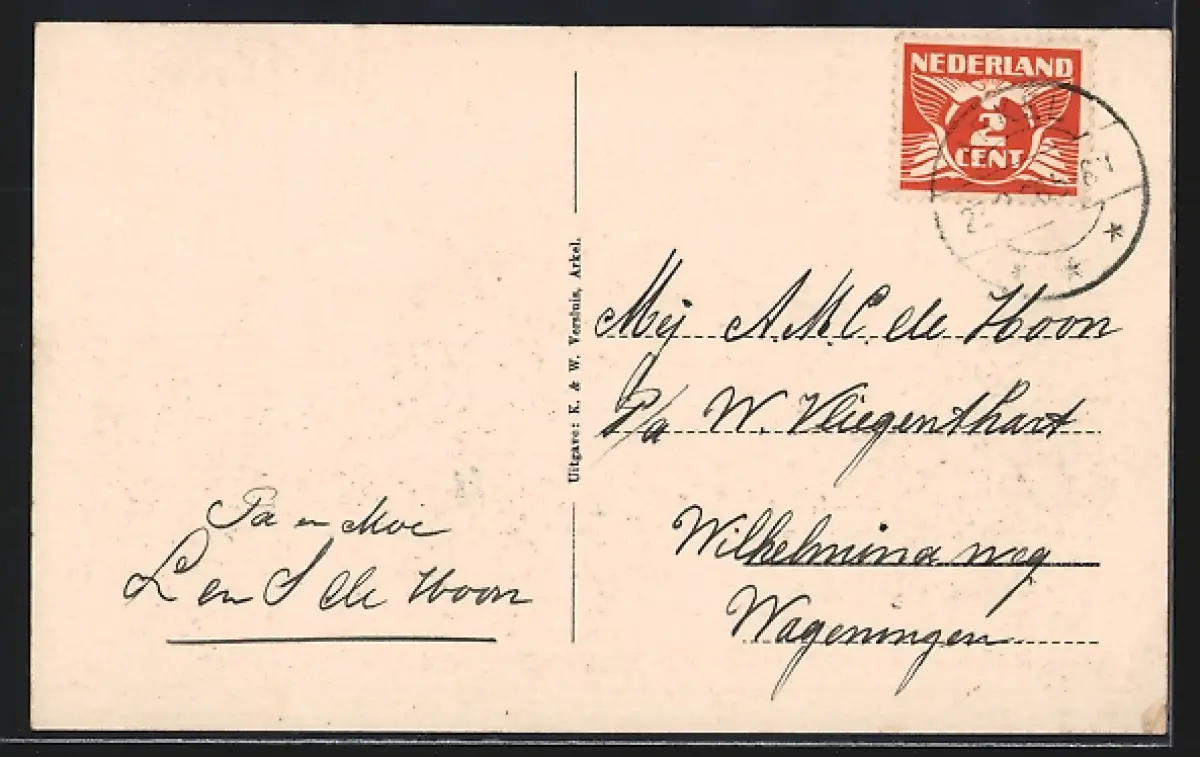 NEDERLAND
2
CENT
Uitgave: K. & W. Versluis, Arkel.
Mej A. M. C. de Hoon
P/a W. Vliegenthart
Wilhelmina weg
Wageningen
Pa en Moe
L en S de Hoon